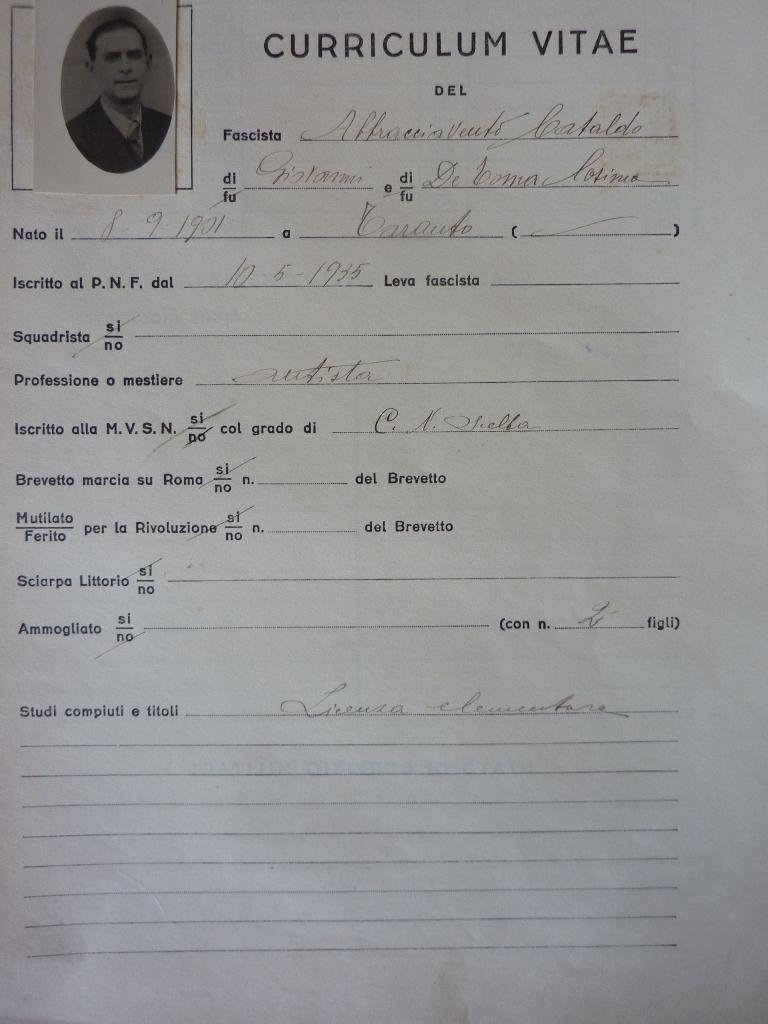 CURRICULUM VITAE
DEL
Fascista Abbracciavento Cataldo
di/fu Giovanni e di/fu De Toma Cosima
Nato il 8-9-1901 a Taranto ( )
Iscritto al P. N. F. dal 10-5-1935 Leva fascista
Squadrista si/no
Professione o mestiere autista
Iscritto alla M. V. S. N. si/no col grado di C. N. scelta
Brevetto marcia su Roma si/no n. del Brevetto
Mutilato/Ferito per la Rivoluzione si/no n. del Brevetto
Sciarpa Littorio si/no
Ammogliato si/no (con n. 2 figli)
Studi compiuti e titoli Licenza elementare